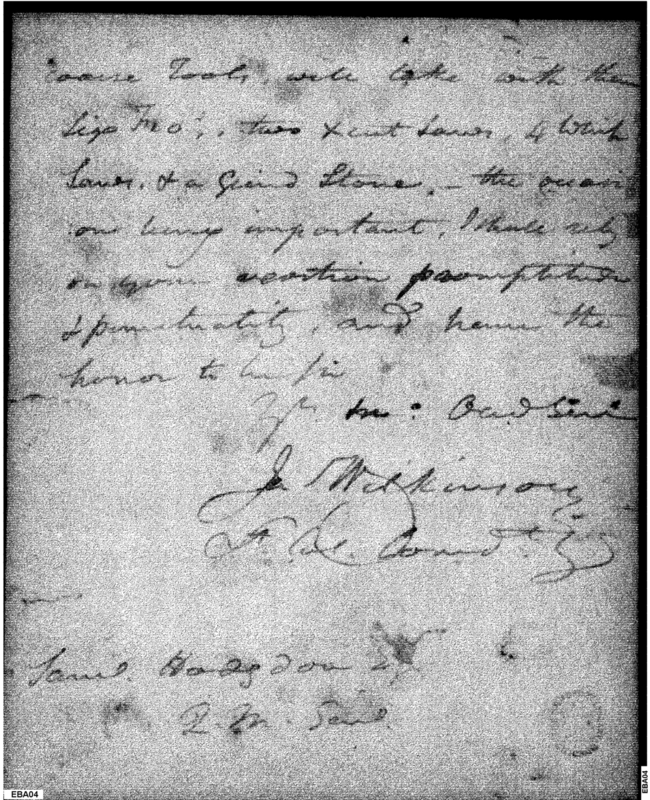 coarse Tools, will take with them
Six Fro's, two Xcut Saws, 4 Whip
Saws, & a Grind Stone, – the occasi
on being important, I shall rely
on your exertion promptitude
& punctuality, and have the
honor to be Sir
Yr. Mo: Obed Serv
Ja Wilkinson
Lt. Col. Comdt.
Saml. Hodgdon
Q. M. Genl.
EBA04
EBA04